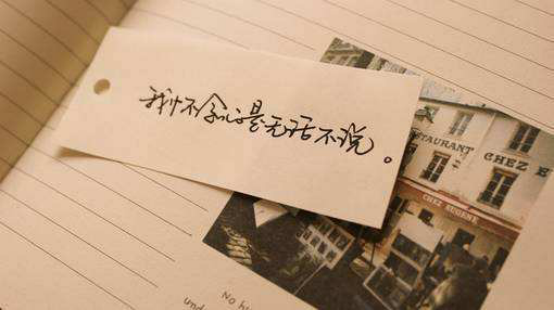 我怀念的是无话不说。
TAURANT CHEZ E
CHEZ EUGENE
No h
und